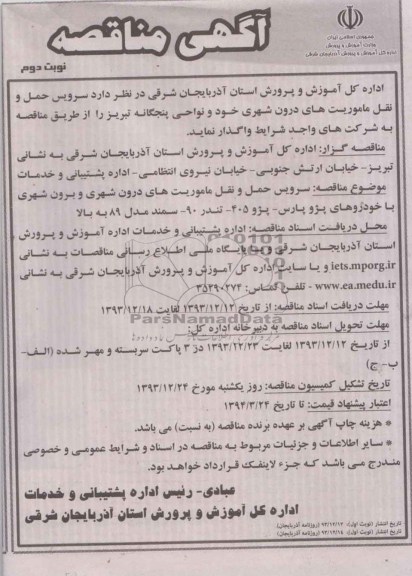 آگهی مناقصه
جمهوری اسلامی ایران
وزارت آموزش و پرورش
اداره کل آموزش و پرورش آذربایجان شرقی
نوبت دوم
اداره کل آموزش و پرورش استان آذربایجان شرقی در نظر دارد سرویس حمل و
نقل ماموریت های درون شهری خود و نواحی پنجگانه تبریز را از طریق مناقصه
به شرکت های واجد شرایط واگذار نماید.
مناقصه گزار: اداره کل آموزش و پرورش استان آذربایجان شرقی به نشانی
تبریز- خیابان ارتش جنوبی- خیابان نیروی انتظامی- اداره پشتیبانی و خدمات
موضوع مناقصه: سرویس حمل و نقل ماموریت های درون شهری و برون شهری
با خودروهای پژو پارس- پژو ۴۰۵- تندر ۹۰- سمند مدل ۸۹ به بالا
محل دریافت اسناد مناقصه: اداره پشتیبانی و خدمات اداره آموزش و پرورش
استان آذربایجان شرقی و پایگاه ملی اطلاع رسانی مناقصات به نشانی
iets.mporg.ir و یا سایت اداره کل آموزش و پرورش آذربایجان شرقی به نشانی
www.ea.medu.ir - تلفن تماس: ۳۵۳۹۰۲۷۴
مهلت دریافت اسناد مناقصه: از تاریخ ۱۳۹۳/۱۲/۱۲ لغایت ۱۳۹۳/۱۲/۱۸
ParsNamadData
مهلت تحویل اسناد مناقصه به دبیرخانه اداره کل:
از تاریخ ۱۳۹۳/۱۲/۱۲ لغایت ۱۳۹۳/۱۲/۲۳ در ۳ پاکت سربسته و مهر شده (الف-
ب- ج)
تاریخ تشکیل کمیسیون مناقصه: روز یکشنبه مورخ ۱۳۹۳/۱۲/۲۴
اعتبار پیشنهاد قیمت: تا تاریخ ۱۳۹۴/۳/۲۴
* هزینه چاپ آگهی بر عهده برنده مناقصه (به نسبت) می باشد.
* سایر اطلاعات و جزئیات مربوط به مناقصه در اسناد و شرایط عمومی و خصوصی
مندرج می باشد که جزء لاینفک قرارداد خواهد بود.
عبادی- رئیس اداره پشتیبانی و خدمات
اداره کل آموزش و پرورش استان آذربایجان شرقی
تاریخ انتشار (نوبت اول): ۹۳/۱۲/۱۲ (روزنامه آذربایجان)
تاریخ انتشار (نوبت دوم): ۹۳/۱۲/۱۴ (روزنامه آذربایجان)